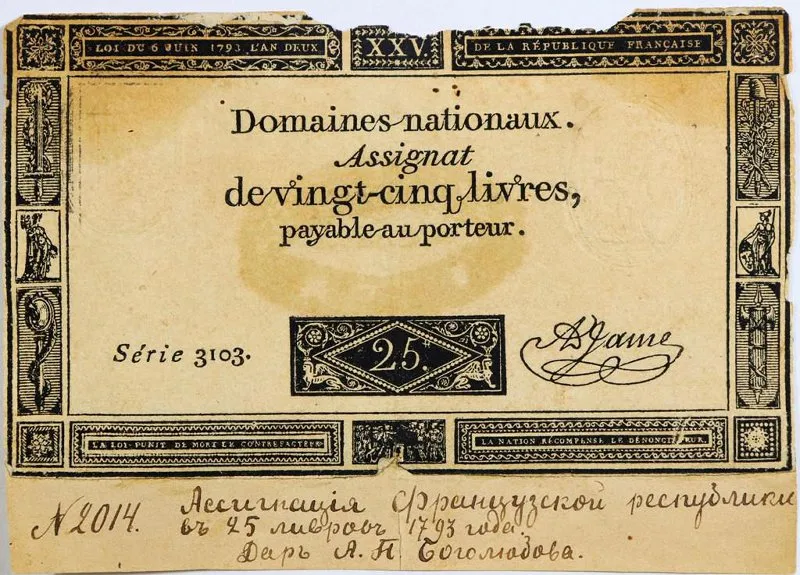 LOI DU 6 JUIN 1793 L'AN DEUX
XXV.
DE LA RÉPUBLIQUE FRANÇAISE
Domaines nationaux.
Assignat
de vingt-cinq livres,
payable au porteur.
Série 3103.
25.
A Jame
LA LOI PUNIT DE MORT LE CONTREFACTEUR
LA NATION RÉCOMPENSE LE DÉNONCIATEUR.
N 2014.
Ассигнація Французской республики
въ 25 ливровъ 1793 года
Даръ А. П. Боголюбова.